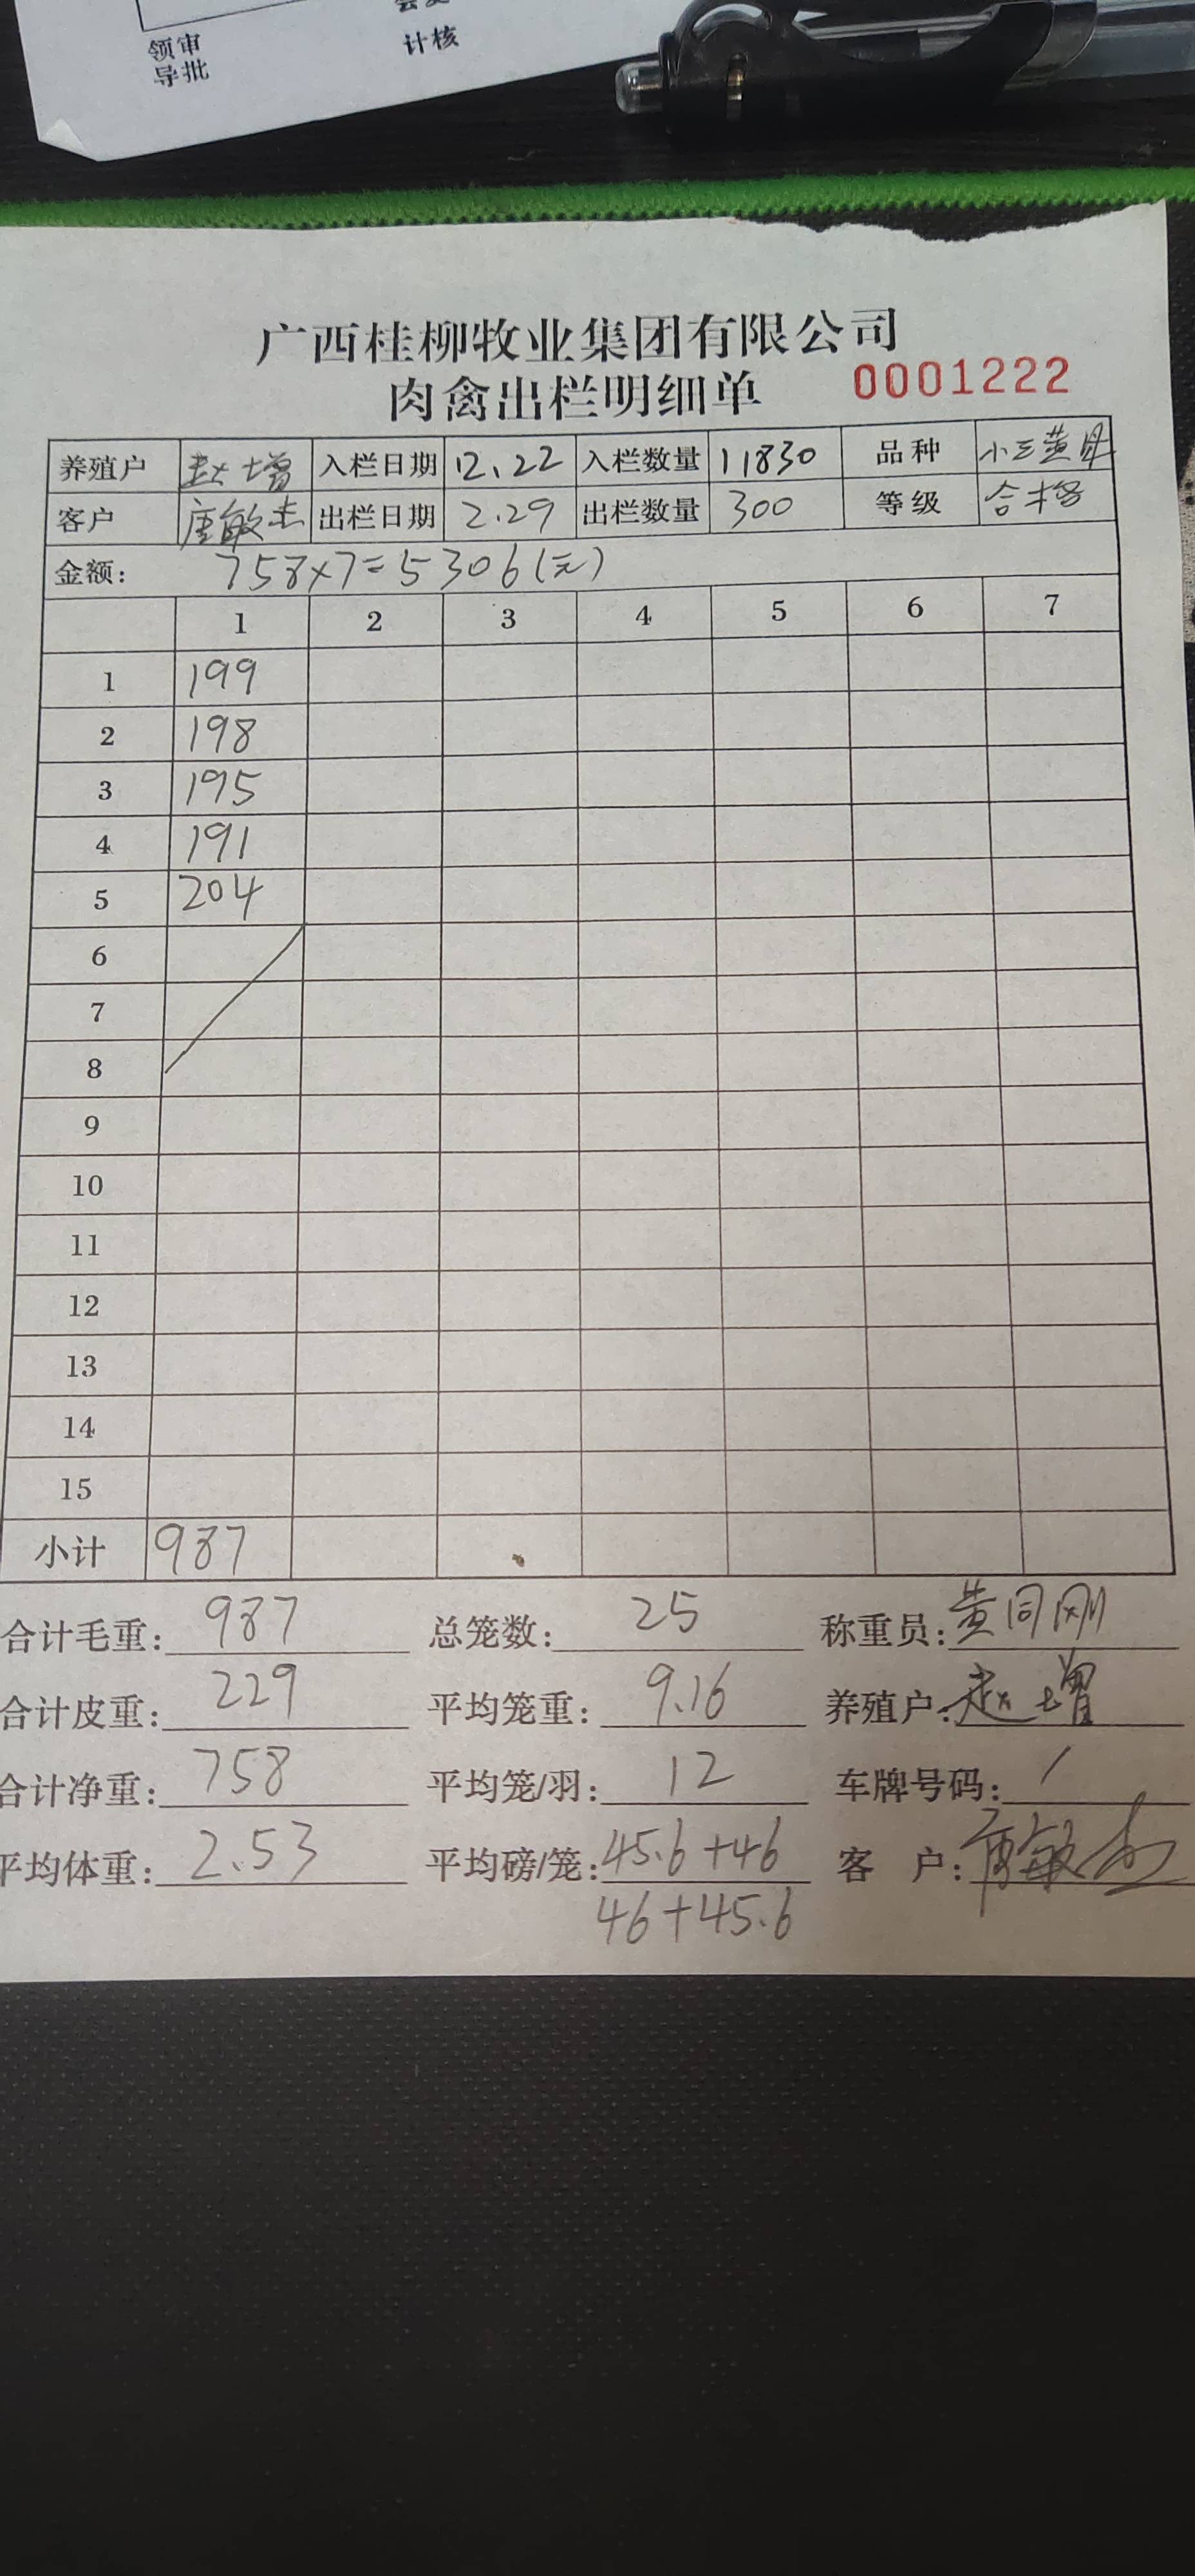 领审
导批
计核
广西桂柳牧业集团有限公司
肉禽出栏明细单 0001222
养殖户 赵增 入栏日期 12.22 入栏数量 11830 品种 小三黄母
客户 唐敏志 出栏日期 2.29 出栏数量 300 等级 合格
金额: 758×7=5306(元)
1 2 3 4 5 6 7
1 199
2 198
3 195
4 191
5 204
6
7
8
9
10
11
12
13
14
15
小计 987
合计毛重: 987 总笼数: 25 称重员: 黄同刚
合计皮重: 229 平均笼重: 9.16 养殖户: 赵增
合计净重: 758 平均笼/羽: 12 车牌号码: /
平均体重: 2.53 平均磅/笼: 45.6+46 客 户: 唐敏志
46+45.6